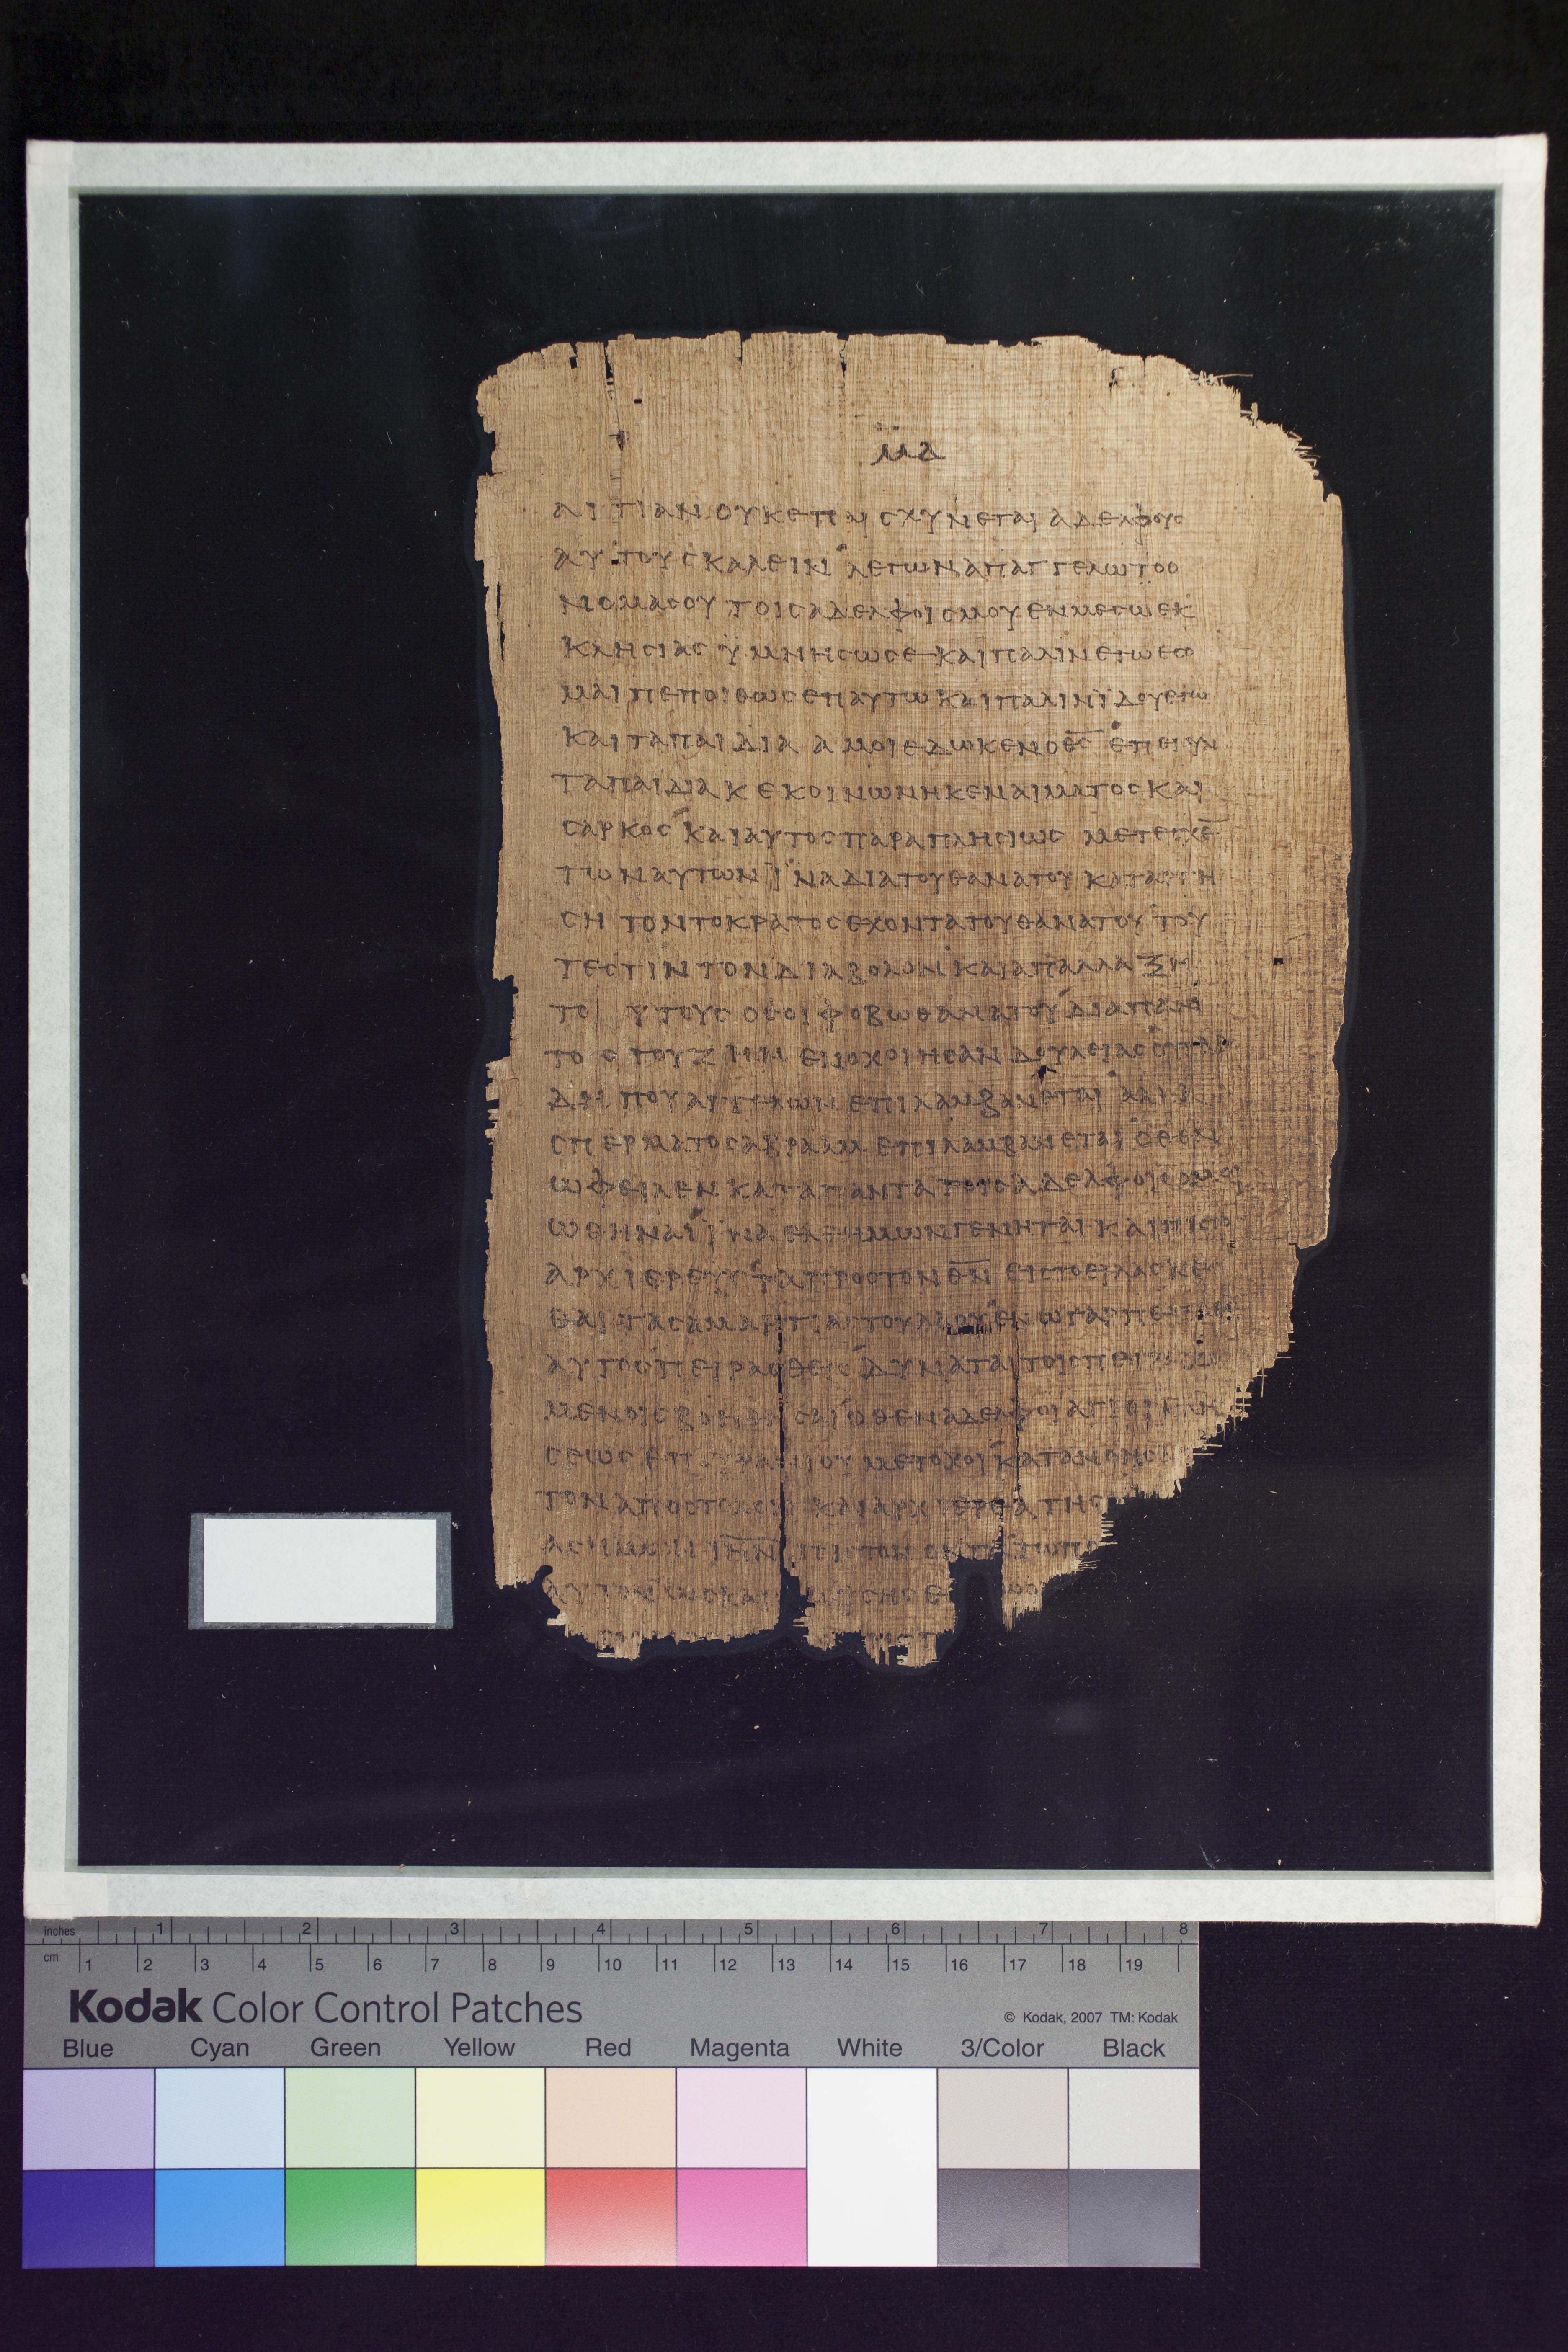 μα
αιτιανουκεπαισχυνεταιαδελφους
αυτουςκαλεινλεγωναπαγγελωτοο
νομασουτοιςαδελφοιςμουενμεσωεκ
κλησιαςϋμνησωσεκαιπαλινεγωεσο
μαιπεποιθωςεπαυτωκαιπαλινϊδουεγω
καιταπαιδιααμοιεδωκενοθ̅ς̅επειουν
ταπαιδιακεκοινωνηκεναιματοςκαι
σαρκοςκαιαυτοςπαραπλησιωςμετεσχε̅
τωναυτωνϊναδιατουθανατουκαταργη
σητοντοκρατοςεχοντατουθανατουτου
τεστιντονδιαβολονκαιαπαλλαξη
το υτουςοσοιφοβωθανατουδιαπαν
τοςτουζηνενοχοιησανδουλειαςουγαρ
δηπουαγγελωνεπιλαμβανεταιαλλα
σπερματοςαβρααμεπιλαμβανεταιοθεν
ωφειλενκαταπαντατοιςαδελφοιςομοι
ωθηναιϊναελεημωνγενηταικαιπιστο
αρχιερευςταπροςτονθ̅ν̅ειςτοειλασκεσ
θαιταςαμαρτιαςτουλαουενωγαρπεπονθεν
αυτοςπειρασθειςδυναταιτοιςπειραζο
μενοιςβοηθησαιοθεναδελφοιαγιοικλη
σεωςεπουρανιουμετοχοικατανοησα
τοναποστολονκαιαρχιερεατης
ι̅η̅ν̅ πιστονοντατωπο
αυτονωςκαιμωυσηςε